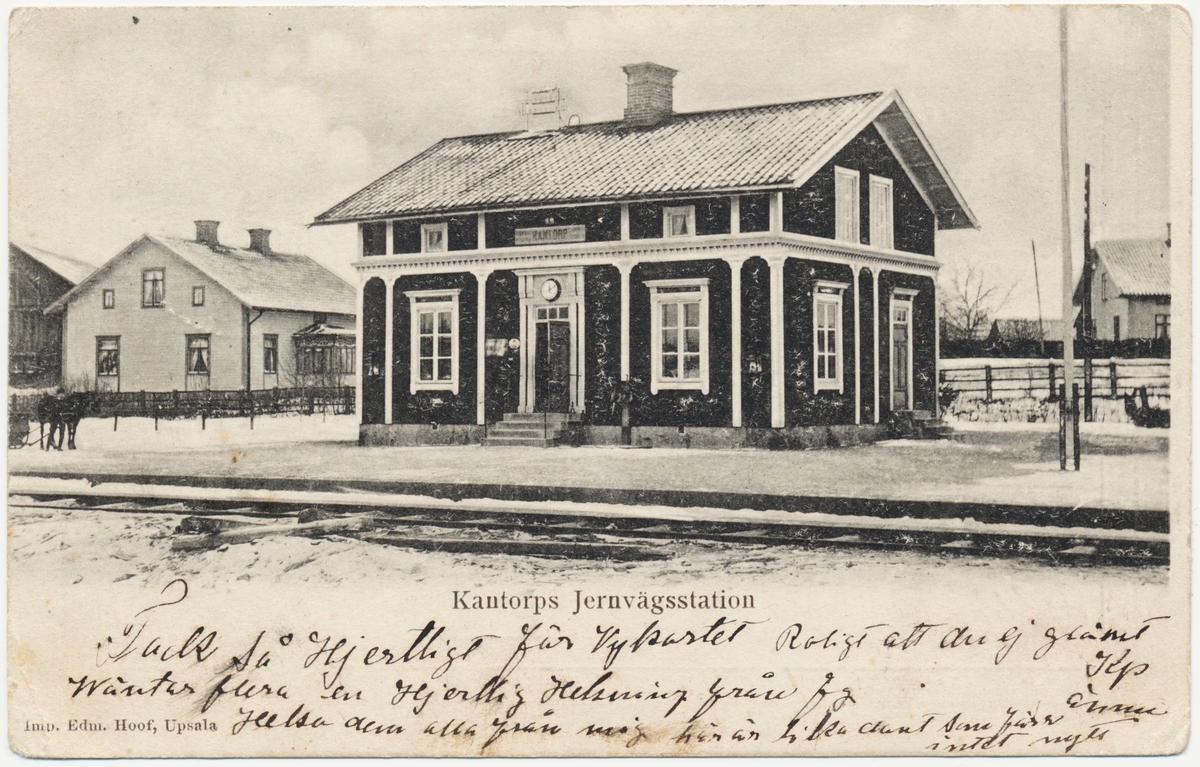 KANTORP
Kantorps Jernvägsstation
Tack så Hjertligt för Vykortet Roligt att du ej glömt
Wäntar flera en Hjertlig Helsning från
Kp
ännu
Imp. Edm. Hoof, Upsala
Helsa dem alla från mig här är lika dant som förr
intet nytt